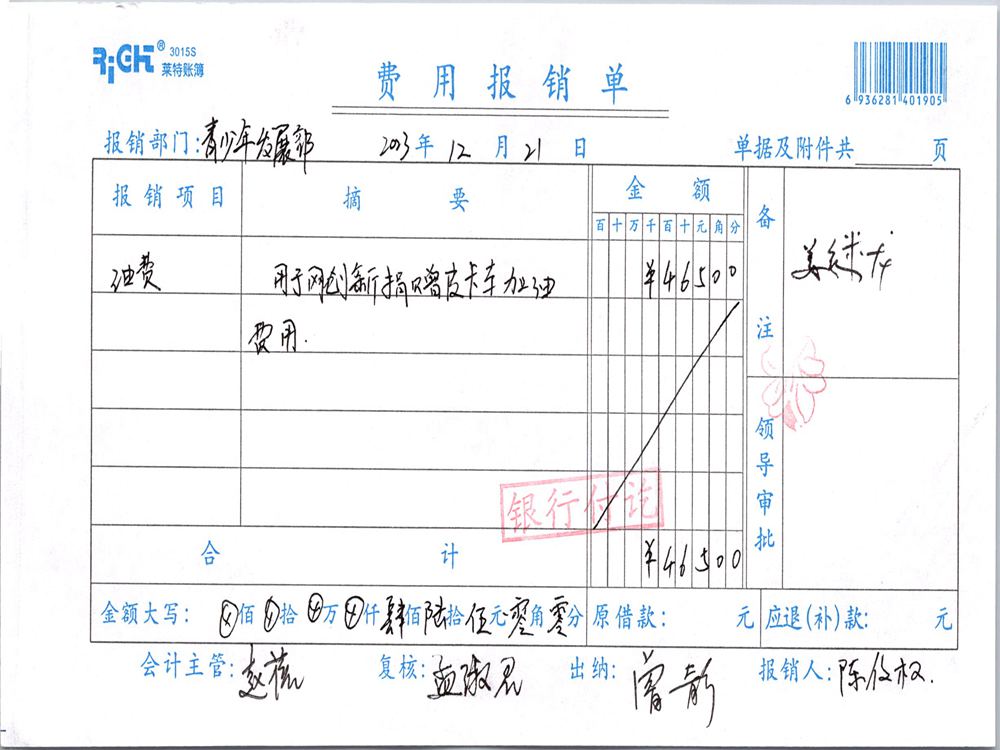 RiGHT® 3015S
莱特账簿
费用报销单
6 936281 401905
报销部门:青少年发展部 2013年12月21日 单据及附件共 页
报销项目 摘要 金额 备注
百十万千百十元角分
油费 用于网创新捐赠皮卡车加油 ¥46500
费用.
领导审批
银行付讫
合计 ¥46500
金额大写: ⊗佰⊗拾⊗万⊗仟肆佰陆拾伍元零角零分 原借款: 元 应退(补)款: 元
会计主管: 复核:孟淑君 出纳:曾彰 报销人:陈俊权.